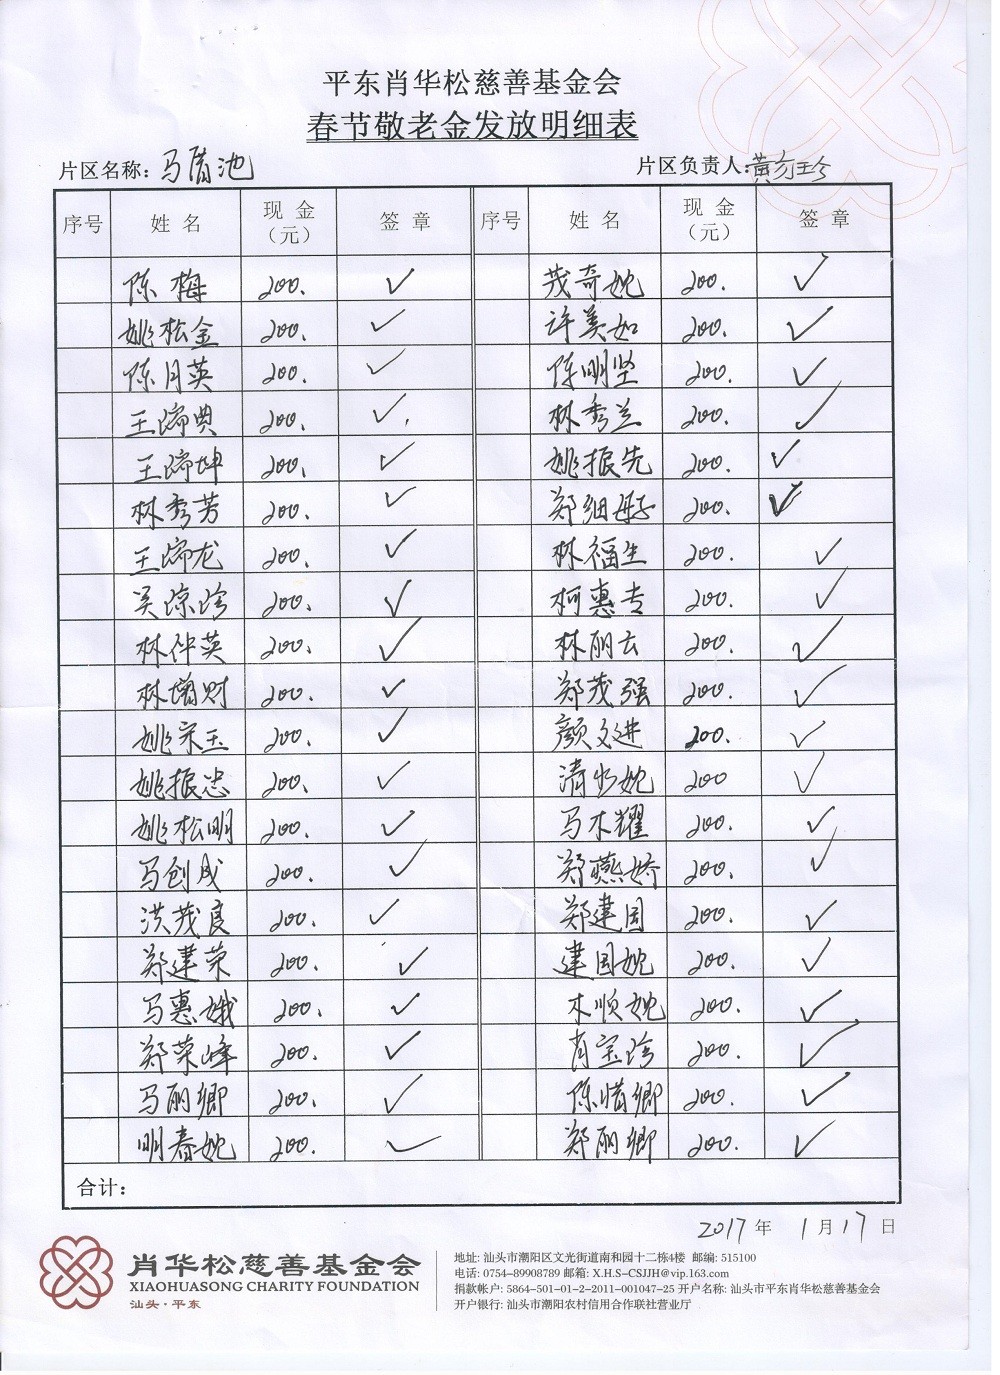 平东肖华松慈善基金会
春节敬老金发放明细表
片区名称：马厝池 片区负责人：黄方珍
序号 姓名 现金（元） 签章 序号 姓名 现金（元） 签章
陈梅 200. ✓ 茂奇婉 200. ✓
姚松金 200. ✓ 许美如 200. ✓
陈月英 200. ✓ 陈明坚 200. ✓
王瑞典 200. ✓ 林秀兰 200. ✓
王瑞坤 200. ✓ 姚振先 200. ✓
林秀芳 200. ✓ 郑细 200. ✓
王瑞龙 200. ✓ 林福生 200. ✓
吴琼珍 200. ✓ 柯惠专 200. ✓
林仲英 200. ✓ 林丽云 200. ✓
林增财 200. ✓ 郑茂强 200. ✓
姚宋玉 200. ✓ 颜文进 200. ✓
姚振忠 200. ✓ 清婉 200 ✓
姚松明 200. ✓ 马木耀 200. ✓
马创成 200. ✓ 郑燕娇 200. ✓
洪茂良 200. ✓ 郑建国 200. ✓
郑建荣 200. ✓ 建国婉 200. ✓
马惠娥 200. ✓ 木顺婉 200. ✓
郑荣峰 200. ✓ 肖宝珍 200. ✓
马丽卿 200. ✓ 陈惜卿 200. ✓
明春婉 200. ✓ 郑丽卿 200. ✓
合计：
2017年 1月17日
肖华松慈善基金会
XIAOHUASONG CHARITY FOUNDATION
汕头·平东
地址: 汕头市潮阳区文光街道南和园十二栋4楼 邮编: 515100
电话: 0754-89908789 邮箱: X.H.S-CSJJH@vip.163.com
捐款帐户: 5864-501-01-2-2011-001047-25 开户名称: 汕头市平东肖华松慈善基金会
开户银行: 汕头市潮阳农村信用合作联社营业厅